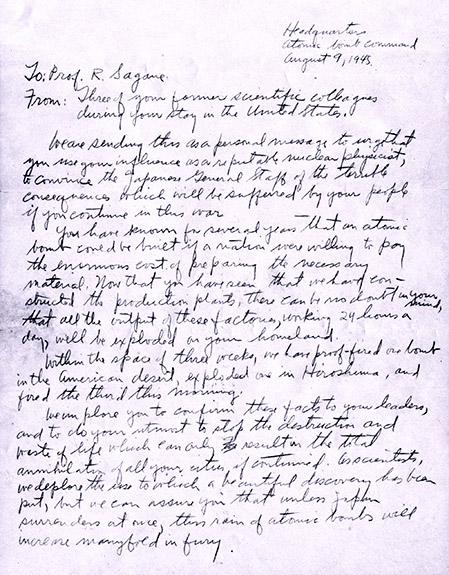 Headquarters
Atomic bomb command
August 9, 1945.
To: Prof. R. Sagane.
From: Three of your former scientific colleagues
during your stay in the United States.
We are sending this as a personal message to urge that
you use your influence as a reputable nuclear physicist,
to convince the Japanese General Staff of the terrible
consequences which will be suffered by your people
if you continue in this war.
You have known for several years that an atomic
bomb could be built if a nation were willing to pay
the enormous cost of preparing the necessary
material. Now that you have seen that we have con-
structed the production plants, there can be no doubt in your mind,
that all the output of these factories, working 24 hours a
day, will be exploded on your homeland.
Within the space of three weeks, we have proof-fired one bomb
in the American desert, exploded one in Hiroshima, and
fired the third this morning.
We implore you to confirm these facts to your leaders,
and to do your utmost to stop the destruction and
waste of life which can only result in the total
annihilation of all your cities, if continued. As scientists,
we deplore the use to which a beautiful discovery has been
put, but we can assure you that unless Japan
surrenders at once, this rain of atomic bombs will
increase manyfold in fury.